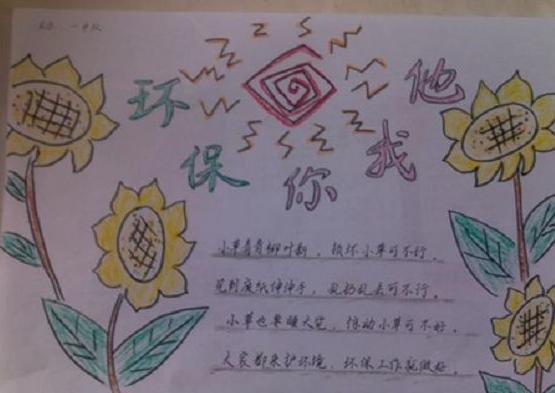 环保你我他
小草青青柳叶新，破坏小草可不行。
见到废纸伸伸手，乱扔乱丢可不行。
小草也要睡大觉，惊动小草可不好。
大家都来护环境，环保工作就做好。